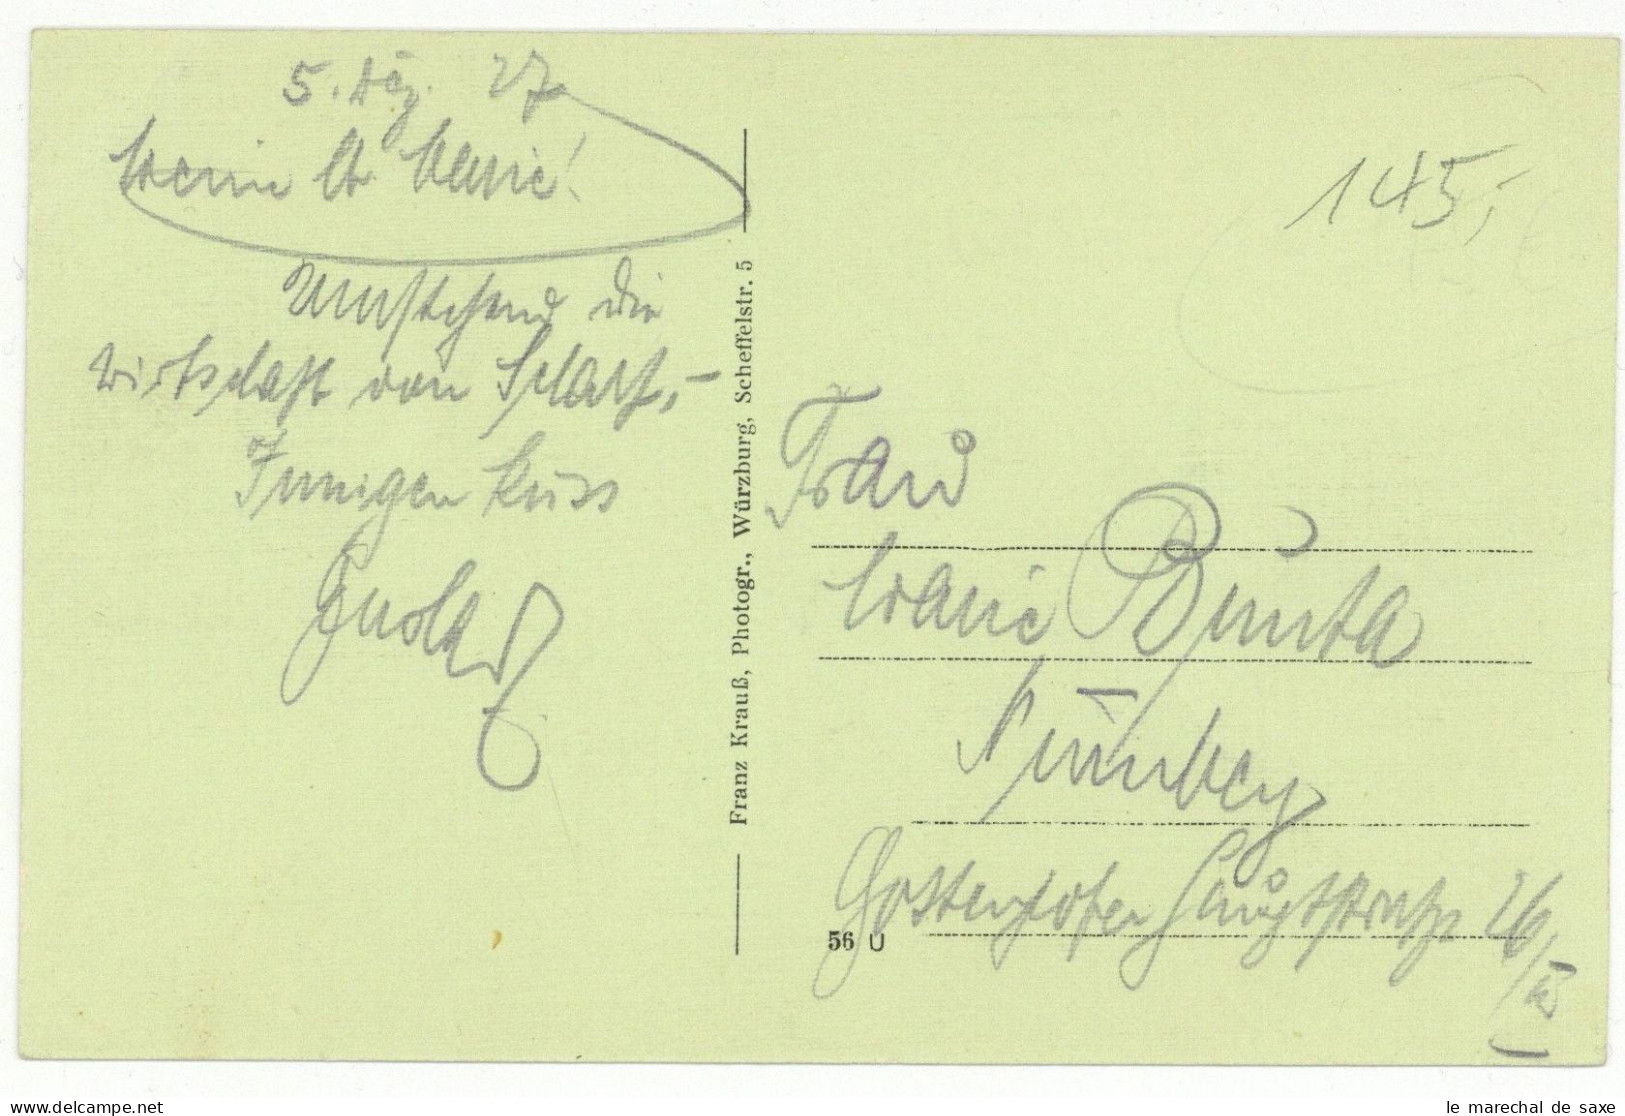 5. Dez. 27
Meine lb. Marie!
Umstehend die
Wirtschaft von Scharf,-
Innigen Kuss
Franz Krauß, Photogr., Würzburg, Scheffelstr. 5
145,-
Frau
Marie Bünta
Nürnberg
Gostenhofer Hauptstraße 26/III
56 U
le marechal de saxe